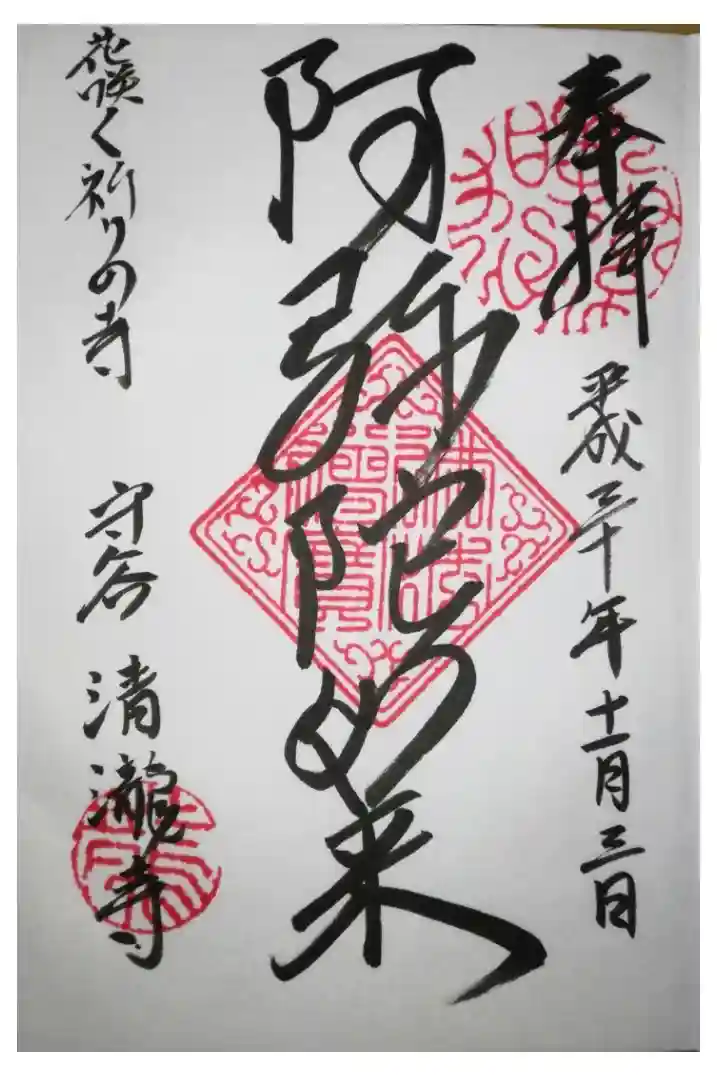 奉拝
平成三十年十一月三日
阿弥陀如来
花咲く祈りの寺
守谷 清瀧寺